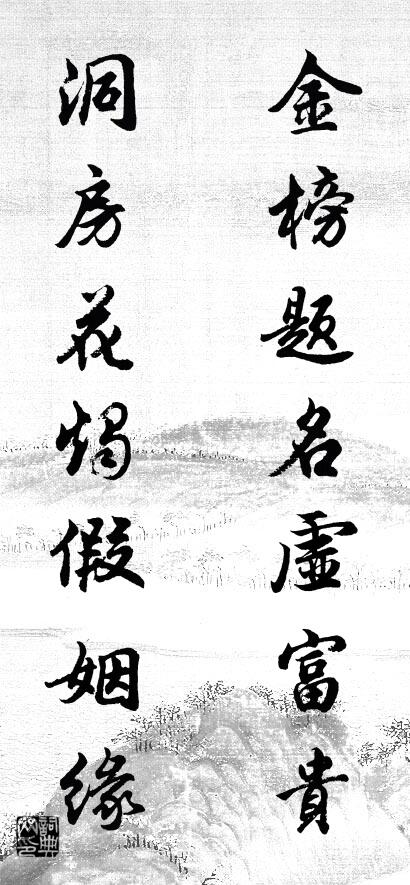 金榜题名虛富貴
洞房花燭假姻緣